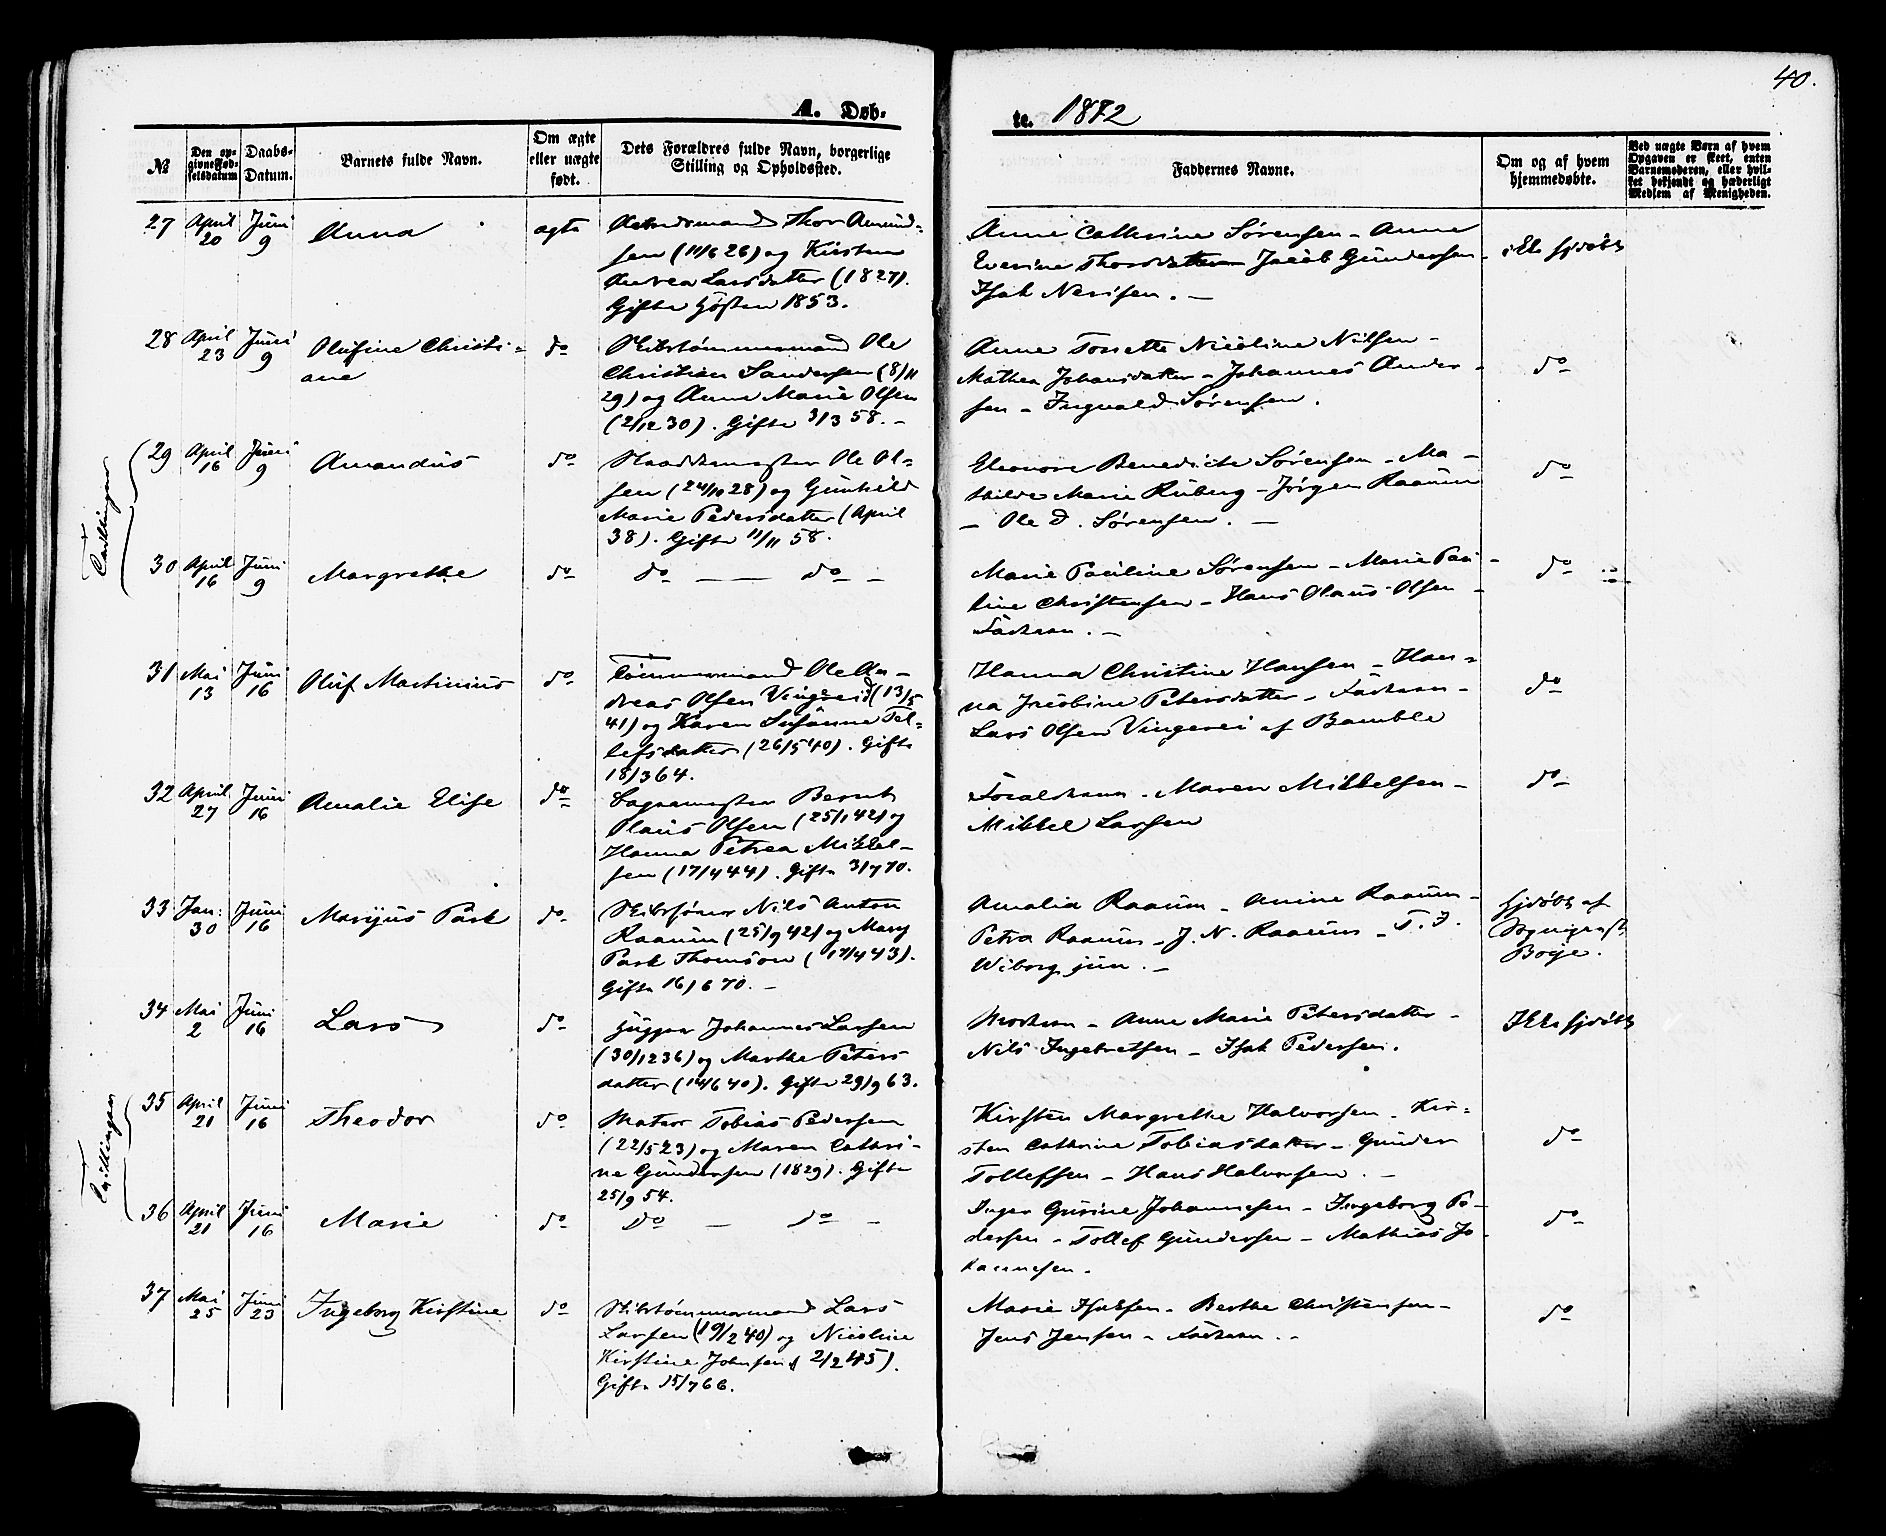 40.
A. Døb-
te. 1872
№
Den op-
givne Fød-
selsdatum
Daabs-
Datum.
Barnets fulde Navn.
Om ægte
eller uægte
født.
Dets Forældres fulde Navn, borgerlige
Stilling og Opholdssted.
Faddernes Navne.
Om og af hvem
hjemmedøbte.
Ved uægte Børn af hvem
Opgaven er skeet, enten
Barnemoderen, eller hvil-
ket bekjendt og hæderligt
Medlem af Menigheden.
27 April 20 Juni 9 Anna ægte
Thor Amund-
sen (11/6 26) og Kirsten
Andrea Larsdatter (1827).
Gifte Høsten 1853.
Anne Cathrine Sørensen - Anne
Everine Thorsdatter - Jacob Gundersen -
Isak Nerisen. -
ikke hjdøbt
28 April 23 Juni 9 Olufine Christi-
ane
do
Skibstømmermand Ole
Christian Sandersen (8/11
29) og Anne Marie Olsen
(2/12 30). Gifte 3/3 58. -
Anne Torette Nicoline Nilsen -
Mathea Johansdatter - Johannes Ander-
sen - Ingvald Sørensen.
do
Tvillinger
29 April 16 Juni 9 Amandus do
Ole Ol-
sen (24/10 28) og Gunhild
Marie Pedersdatter (April
38). Gifte 11/11 58.
Eleonore Benedicte Sørensen - Ma-
thilde Marie Ruberg - Jørgen Raaum
- Ole D. Sørensen. -
do
30 April 16 Juni 9 Margrethe do
do - - do -
Marie Pauline Sørensen - Marie Pau-
line Christensen - Hans Olaus Olsen -
Faderen. -
do
31 Mai 13 Juni 16 Oluf Martinius do
Tømmermand Ole An-
dreas Olsen Vingereid (13/5
41) og Karen Susanne Tel-
lefsdatter (26/5 40). Gifte
18/3 64.
Hanna Christine Hansen - Han-
na Jacobine Petersdatter - Faderen -
Lars Olsen Vingerei af Bamble
do
32 April 27 Juni 16 Amalie Elise do
Bernt
Olaus Olsen (25/1 42) og
Hanna Petrea Mikkel-
sen (17/4 44). Gifte 3/7 70.
Forældrene - Maren Mikkelsen -
Mikkel Larsen
do
33 Jan: 30 Juni 16 Marijus Park do
Skibsfører Nils Anton
Raaum (25/9 42) og Mary
Park Thomson (17/4 43).
Gifte 16/6 70. -
Amalia Raaum - Anine Raaum -
Petra Raaum - J. N. Raaum - T. J.
Wiborg jun. -
hjdøbt af
Sognepræst
Boye.
34 Mai 2 Juni 16 Lars do
Johannes Larsen
(30/12 36) og Marthe Peters
datter (14/6 40). Gifte 29/9 63.
Moderen - Anne Marie Petersdatter -
Nils Ingebretsen - Isak Pedersen.
Ikke hjdøbt
Tvillinger
35 April 21 Juni 16 Theodor do
Matros Tobias Pedersen
(22/5 23) og Maren Cathri-
ne Gundersen (1829). Gifte
25/9 54.
Kirsten Margrethe Halvorsen - Kir-
sten Cathrine Tobiasdatter - Gunder
Tollefsen - Hans Halvorsen. -
do
36 April 21 Juni 16 Marie do
Do - do -
Inger Gurine Johannesen - Ingeborg Pe-
dersen - Tollef Gundersen - Mathias Jo-
hannesen.
do
37 Mai 25 Juni 23 Ingeborg Kirstine do
Skibstømmermand Lars
Larsen (19/2 40) og Nicoline
Kirstine Johnsen (2/2 45).
Gifte 15/7 66.
Marie Isaksen - Berthe Christensen -
Jens Jensen - Faderen. -
do